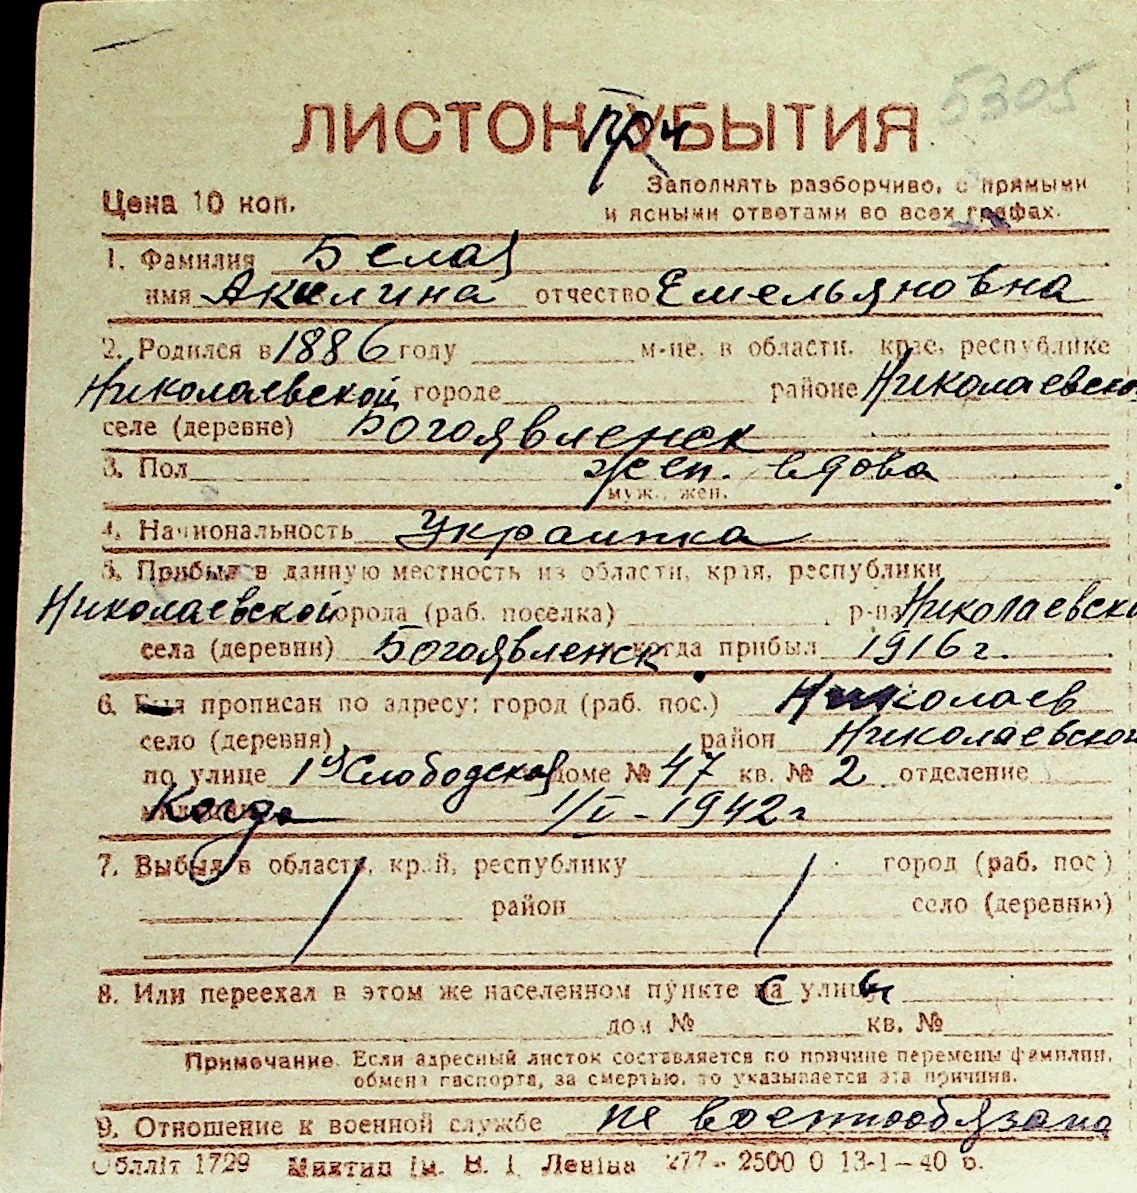 5305
ЛИСТОК ПРИБЫТИЯ
Заполнять разборчиво, с прямыми
Цена 10 коп.
и ясными ответами во всех графах.
1. Фамилия Белая
имя Акилина отчество Емельяновна
2. Родился в 1886 году м-це, в области, крае, республике
Николаевской городе районе Николаевско
селе (деревне) Богоявленск
3. Пол жен. вдова
муж., жен.
4. Национальность Украинка
5. Прибыл в данную местность из области, края, республики
Николаевской города (раб. поселка) р-на Николаевски
села (деревни) Богоявленск когда прибыл 1916 г.
6. Был прописан по адресу: город (раб. пос.) Николаев
село (деревня) район Николаевской
по улице 1 Слободская доме № 47 кв. № 2 отделение
милиции Когда 1/V - 1942 г
7. Выбыл в область, край, республику город (раб. пос.)
район село (деревню)
8. Или переехал в этом же населенном пункте с улицы
дом № кв. №
Примечание. Если адресный листок составляется по причине перемены фамилии,
обмена паспорта, за смертью, то указывается эта причина.
9. Отношение к военной службе не военнообязана
Облліт 1729 Миктип ім. В. І. Леніна 277 - 2500 0 13-1-40 р.